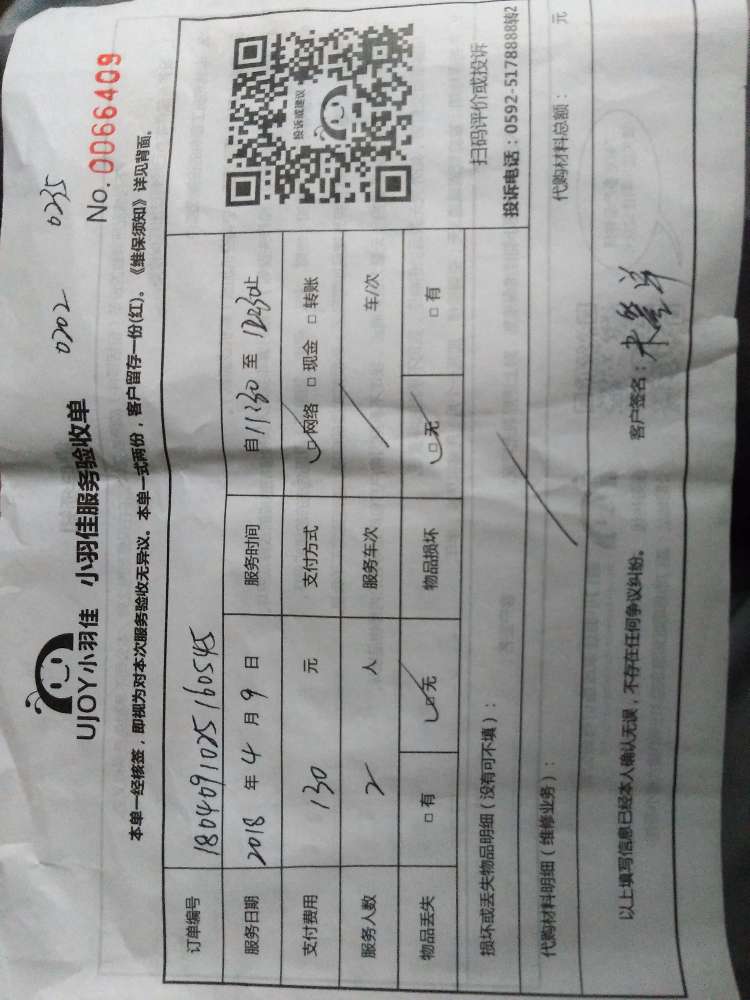 UJOY小羽佳 小羽佳服务验收单
0202 0235
No.0066409
本单一经核签，即视为对本次服务验收无异议。本单一式两份，客户留存一份(红)。《维保须知》详见背面。
订单编号 1804091025160545
服务日期 2018 年 4 月 9 日 服务时间 自 11:30 至 12:30止
支付费用 130 元 支付方式 □ 网络 □ 现金 □ 转账
服务人数 2 人 服务车次 车/次
物品丢失 □ 有 □ 无 物品损坏 □ 无 □ 有
投诉或建议
扫码评价或投诉
投诉电话：0592-5178888转2
损坏或丢失物品明细（没有可不填）：
代购材料明细（维修业务）： 代购材料总额： 元
以上填写信息已经本人确认无误，不存在任何争议纠纷。 客户签名：